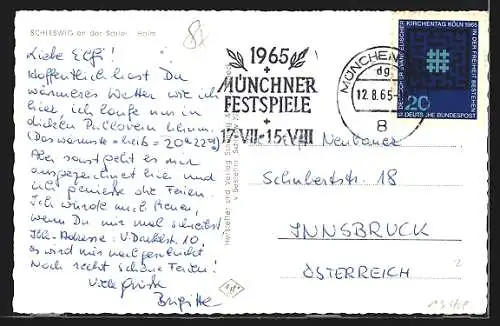 SCHLESWIG an der Schlei Holm
Liebe Elfi!
Hoffentlich hast Du
wärmeres Wetter wie ich
hier, ich laufe nur in
dicken Pullovern herum.
(Das wärmste = heiß = 20°-22°)
Aber sonst geht es mir
ausgezeichnet hier und
ich genieße die Ferien.
Ich würde mich freuen,
wenn Du mir mal schreibst
Ihre Adresse: V. 10,
es wird mir nachgeschickt
Noch recht schöne Ferien!
Viele Grüße
Brigitte
1965
+
MÜNCHNER
FESTSPIELE
+
17·VII-15·VIII
MÜNCHEN
dg
12.8.65
8
12. DEUTSCHER EVANGELISCHER KIRCHENTAG KÖLN 1965
IN DER FREIHEIT BESTEHEN
20
DEUTSCHE BUNDESPOST
Neubauer
Schubertstr. 18
INNSBRUCK
ÖSTERREICH
Hersteller und Verlag